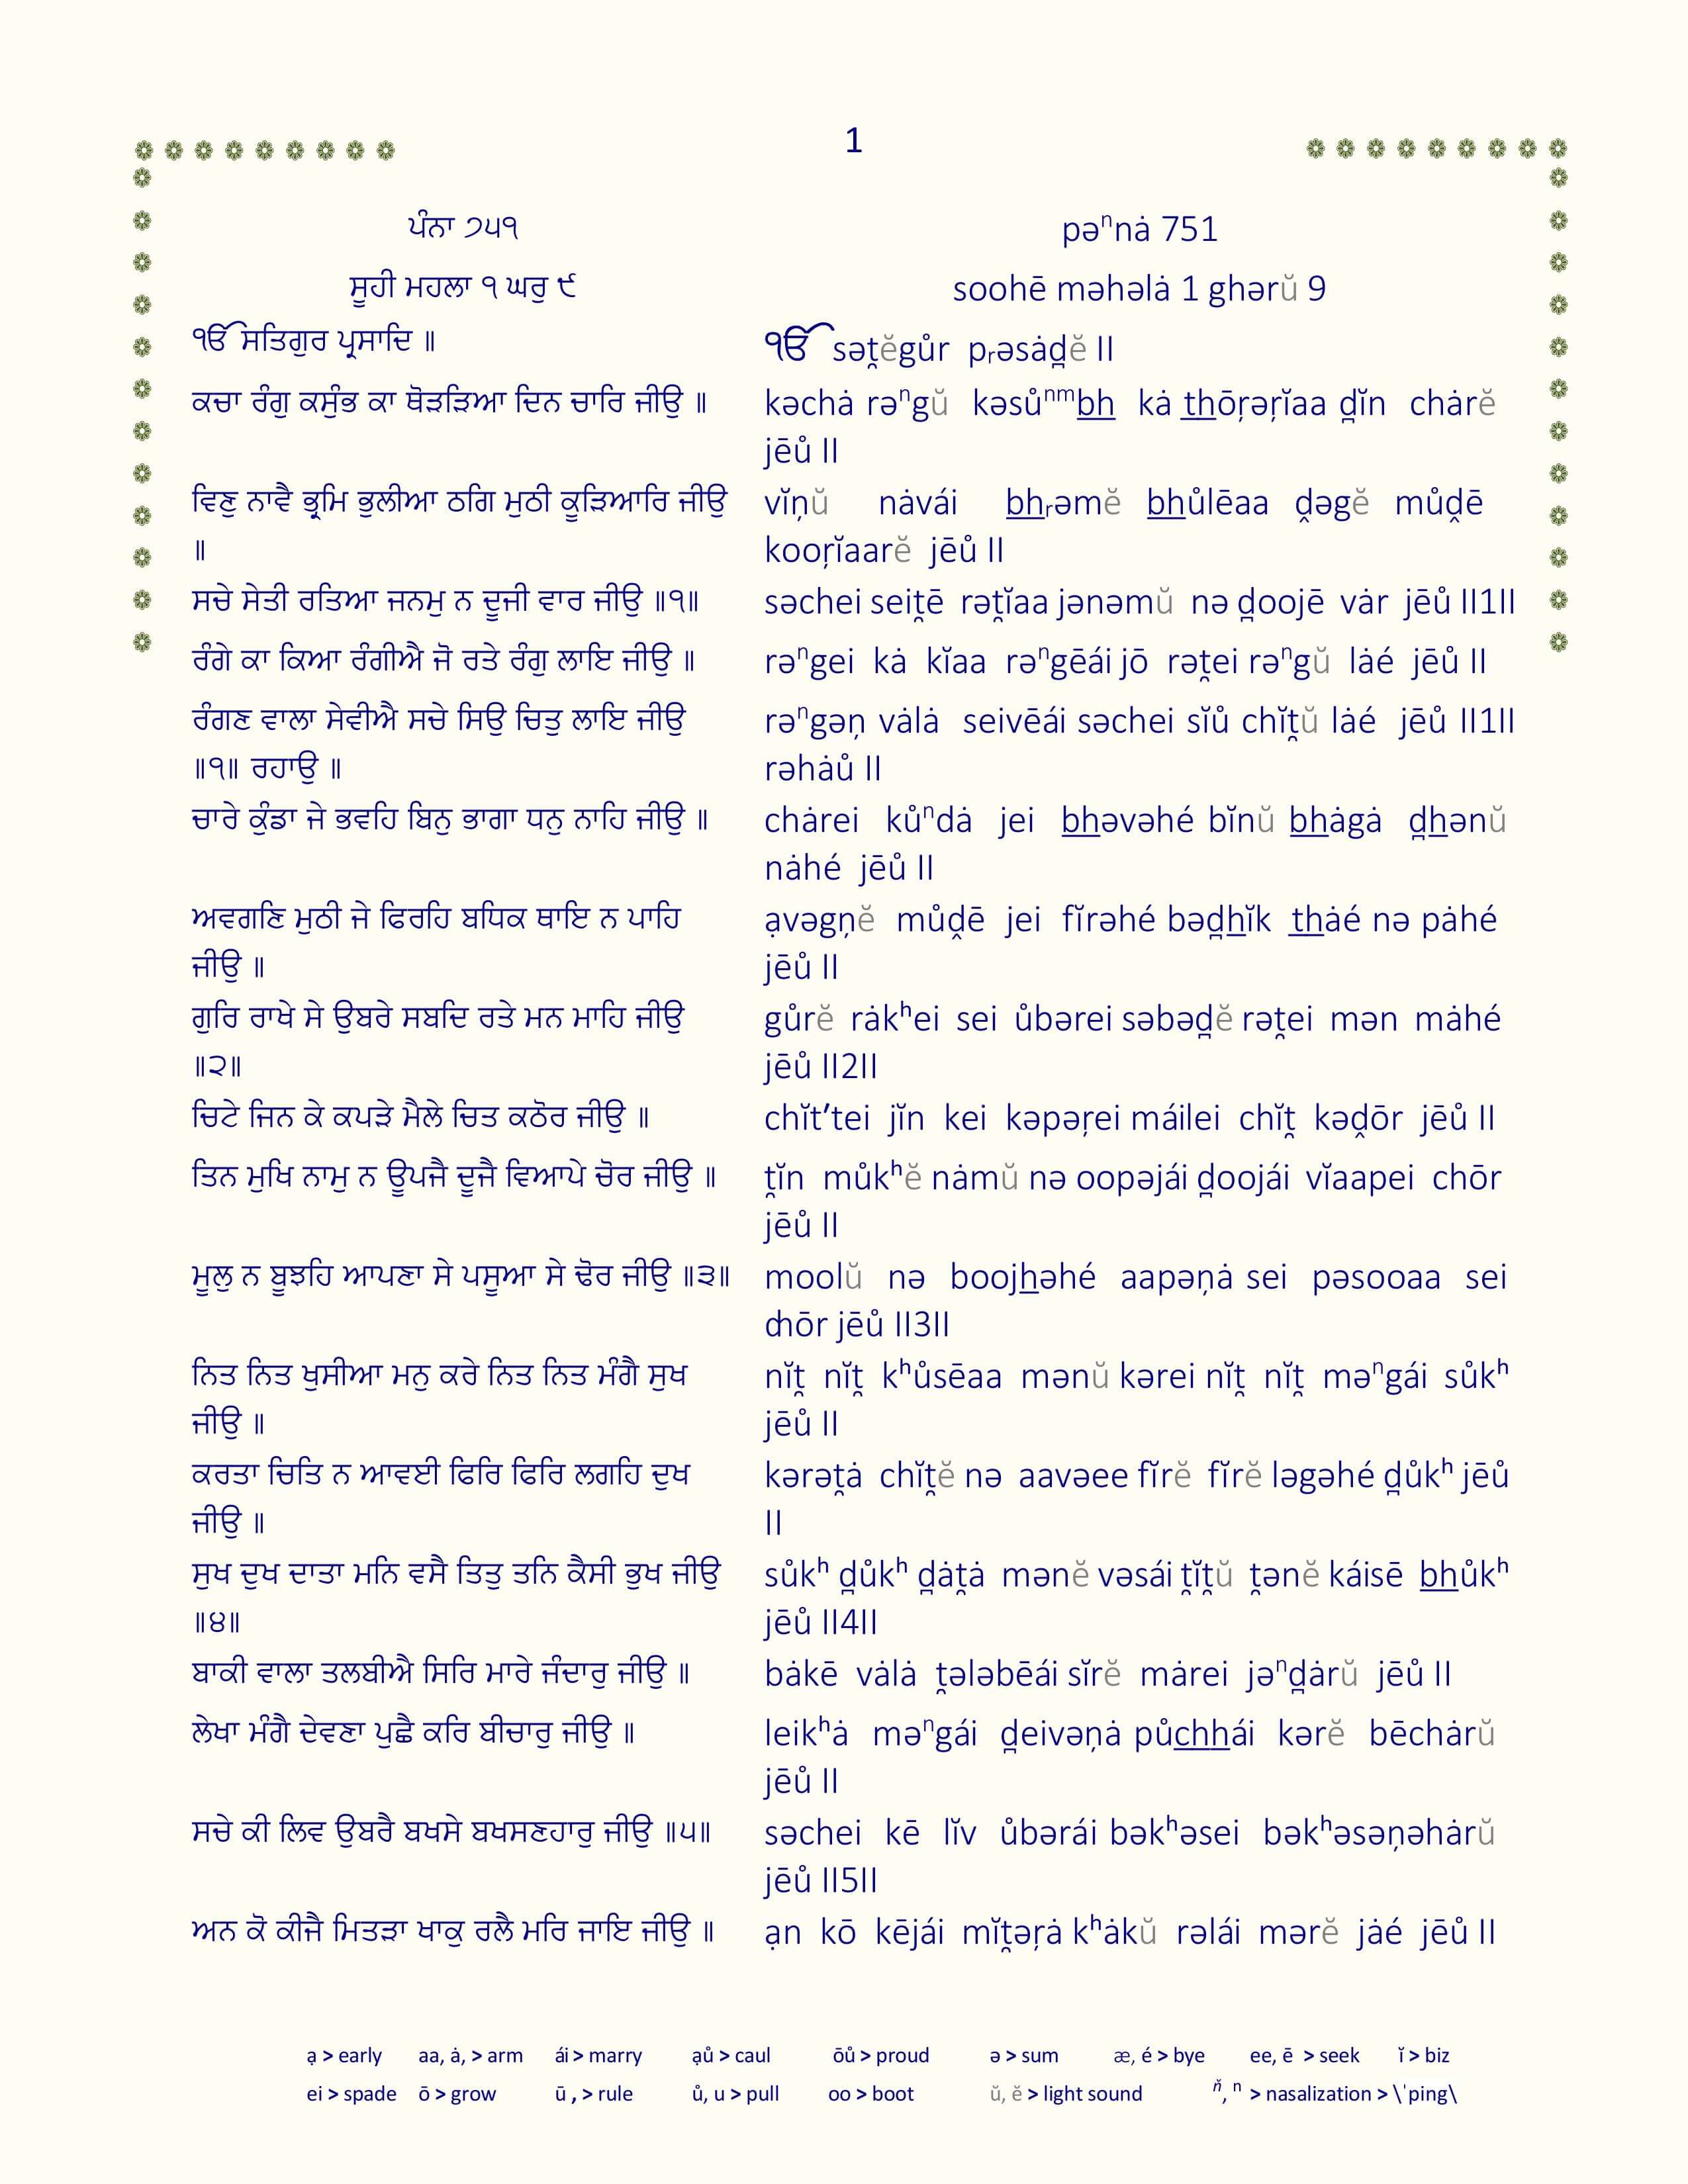 1
ਪੰਨਾ ੭੫੧
pəⁿnȧ 751
ਸੂਹੀ ਮਹਲਾ ੧ ਘਰੁ ੯
soohē məhəlȧ 1 ghərŭ 9
ੴ ਸਤਿਗੁਰ ਪ੍ਰਸਾਦਿ ॥
ੴ sət̯ĕgůr pᵣəsȧd̪ĕ II
ਕਚਾ ਰੰਗੁ ਕਸੁੰਭ ਕਾ ਥੋੜੜਿਆ ਦਿਨ ਚਾਰਿ ਜੀਉ ॥
kəchȧ rəⁿgŭ kəsůⁿᵐbh kȧ thōŗəŗĭaa d̪ĭn chȧrĕ
jēů II
ਵਿਣੁ ਨਾਵੈ ਭ੍ਰਮਿ ਭੁਲੀਆ ਠਗਿ ਮੁਠੀ ਕੂੜਿਆਰਿ ਜੀਉ
॥
vĭņŭ nȧvái bhᵣəmĕ bhůlēaa ḓəgĕ můḓē
kooŗĭaarĕ jēů II
ਸਚੇ ਸੇਤੀ ਰਤਿਆ ਜਨਮੁ ਨ ਦੂਜੀ ਵਾਰ ਜੀਉ ॥੧॥
səchei seit̯ē rət̯ĭaa jənəmŭ nə d̪oojē vȧr jēů II1II
ਰੰਗੇ ਕਾ ਕਿਆ ਰੰਗੀਐ ਜੋ ਰਤੇ ਰੰਗੁ ਲਾਇ ਜੀਉ ॥
rəⁿgei kȧ kĭaa rəⁿgēái jō rət̯ei rəⁿgŭ lȧé jēů II
ਰੰਗਣ ਵਾਲਾ ਸੇਵੀਐ ਸਚੇ ਸਿਉ ਚਿਤੁ ਲਾਇ ਜੀਉ
॥੧॥ ਰਹਾਉ ॥
rəⁿgəņ vȧlȧ seivēái səchei sĭů chĭt̯ŭ lȧé jēů II1II
rəhȧů II
ਚਾਰੇ ਕੁੰਡਾ ਜੇ ਭਵਹਿ ਬਿਨੁ ਭਾਗਾ ਧਨੁ ਨਾਹਿ ਜੀਉ ॥
chȧrei kůⁿdȧ jei bhəvəhé bĭnŭ bhȧgȧ d̪hənŭ
nȧhé jēů II
ਅਵਗਣਿ ਮੁਠੀ ਜੇ ਫਿਰਹਿ ਬਧਿਕ ਥਾਇ ਨ ਪਾਹਿ
ਜੀਉ ॥
ạvəgņĕ můḓē jei fĭrəhé bəd̪hĭk thȧé nə pȧhé
jēů II
ਗੁਰਿ ਰਾਖੇ ਸੇ ਉਬਰੇ ਸਬਦਿ ਰਤੇ ਮਨ ਮਾਹਿ ਜੀਉ
॥੨॥
gůrĕ rȧkʰei sei ůbərei səbəd̪ĕ rət̯ei mən mȧhé
jēů II2II
ਚਿਟੇ ਜਿਨ ਕੇ ਕਪੜੇ ਮੈਲੇ ਚਿਤ ਕਠੋਰ ਜੀਉ ॥
chĭt’tei jĭn kei kəpəŗei máilei chĭt̯ kəḓōr jēů II
ਤਿਨ ਮੁਖਿ ਨਾਮੁ ਨ ਊਪਜੈ ਦੂਜੈ ਵਿਆਪੇ ਚੋਰ ਜੀਉ ॥
t̯ĭn můkʰĕ nȧmŭ nə oopəjái d̪oojái vĭaapei chōr
jēů II
ਮੂਲੁ ਨ ਬੂਝਹਿ ਆਪਣਾ ਸੇ ਪਸੂਆ ਸੇ ਢੋਰ ਜੀਉ ॥੩॥
moolŭ nə boojhəhé aapəņȧ sei pəsooaa sei
dhōr jēů II3II
ਨਿਤ ਨਿਤ ਖੁਸੀਆ ਮਨੁ ਕਰੇ ਨਿਤ ਨਿਤ ਮੰਗੈ ਸੁਖ
ਜੀਉ ॥
nĭt̯ nĭt̯ kʰůsēaa mənŭ kərei nĭt̯ nĭt̯ məⁿgái sůkʰ
jēů II
ਕਰਤਾ ਚਿਤਿ ਨ ਆਵਈ ਫਿਰਿ ਫਿਰਿ ਲਗਹਿ ਦੁਖ
ਜੀਉ ॥
kərət̯ȧ chĭt̯ĕ nə aavəee fĭrĕ fĭrĕ ləgəhé d̪ůkʰ jēů
II
ਸੁਖ ਦੁਖ ਦਾਤਾ ਮਨਿ ਵਸੈ ਤਿਤੁ ਤਨਿ ਕੈਸੀ ਭੁਖ ਜੀਉ
॥੪॥
sůkʰ d̪ůkʰ d̪ȧt̯ȧ mənĕ vəsái t̯ĭt̯ŭ t̯ənĕ káisē bhůkʰ
jēů II4II
ਬਾਕੀ ਵਾਲਾ ਤਲਬੀਐ ਸਿਰਿ ਮਾਰੇ ਜੰਦਾਰੁ ਜੀਉ ॥
bȧkē vȧlȧ t̯ələbēái sĭrĕ mȧrei jəⁿd̪ȧrŭ jēů II
ਲੇਖਾ ਮੰਗੈ ਦੇਵਣਾ ਪੁਛੈ ਕਰਿ ਬੀਚਾਰੁ ਜੀਉ ॥
leikʰȧ məⁿgái d̪eivəņȧ půchhái kərĕ bēchȧrŭ
jēů II
ਸਚੇ ਕੀ ਲਿਵ ਉਬਰੈ ਬਖਸੇ ਬਖਸਣਹਾਰੁ ਜੀਉ ॥੫॥
səchei kē lĭv ůbərái bəkʰəsei bəkʰəsəņəhȧrŭ
jēů II5II
ਅਨ ਕੋ ਕੀਜੈ ਮਿਤੜਾ ਖਾਕੁ ਰਲੈ ਮਰਿ ਜਾਇ ਜੀਉ ॥
ạn kō kējái mĭt̯əŗȧ kʰȧkŭ rəlái mərĕ jȧé jēů II
ạ > early aa, ȧ, > arm ái > marry ạů > caul ōů > proud ə > sum æ, é > bye ee, ē > seek ĭ > biz
ei > spade ō > grow ū , > rule ů, u > pull oo > boot ŭ, ĕ > light sound ň, ⁿ > nasalization > \ˈping\